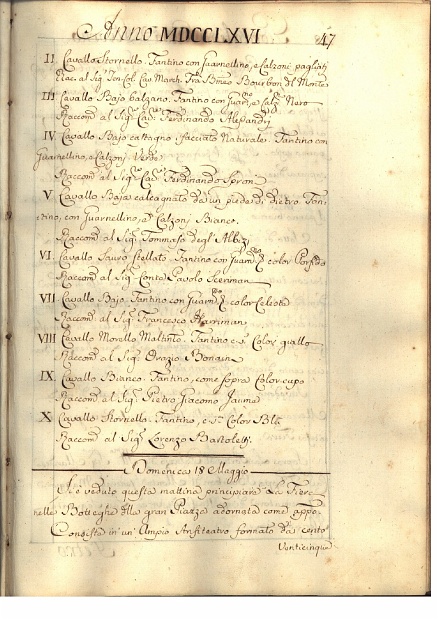 Anno MDCCLXVI 47
II Cavallo Stornello. Tantino con Guarnellino, e Calzoni pagliati
Racc. al Sig. Ten. Col. Cav. March. Bourbon del Monte
III Cavallo Bajo balzano. Tantino con Guarn.no e Calz. Nero
Raccom. al Sig. Cav. Ferdinando Alepandrj
IV Cavallo Bajo castagno, sfacciato Naturale. Tantino con
Guarnellino, e Calzonj Verde
Raccom. al Sig. Cav. Ferdinando Spron
V Cavallo Bajo calcagnato da un piede di dietro. Fan
tino, con Guarnellino, e Calzonj Bianco.
Raccom. al Sig. Tommaso degl' Albizj
VI. Cavallo Sauro stellato. Tantino con Guarn. color Porfido
Raccom. al Sig. Conte Paolo Scerman
VII Cavallo Bajo. Tantino con Guarn. color Celeste
Raccom. al Sig. Francesco Harriman
VIII Cavallo Morello Maltinto. Tantino c. s. Color giallo
Raccom. al Sig. Orazio
IX. Cavallo Bianco. Tantino, come sopra Color cupo
Raccom. al Sig. Pietro Giacomo Jaume
X Cavallo Stornello. Tantino, c. s. Color Blù
Raccom. al Sig. Lorenzo Bartolettj.
Domenica 18 Maggio
Si è veduto questa mattina principiare La Fiera
nelle Botteghe della gran Piazza adornata come appo.
Consista in un' Ampio Anfiteatro formato da cento
Venticinque